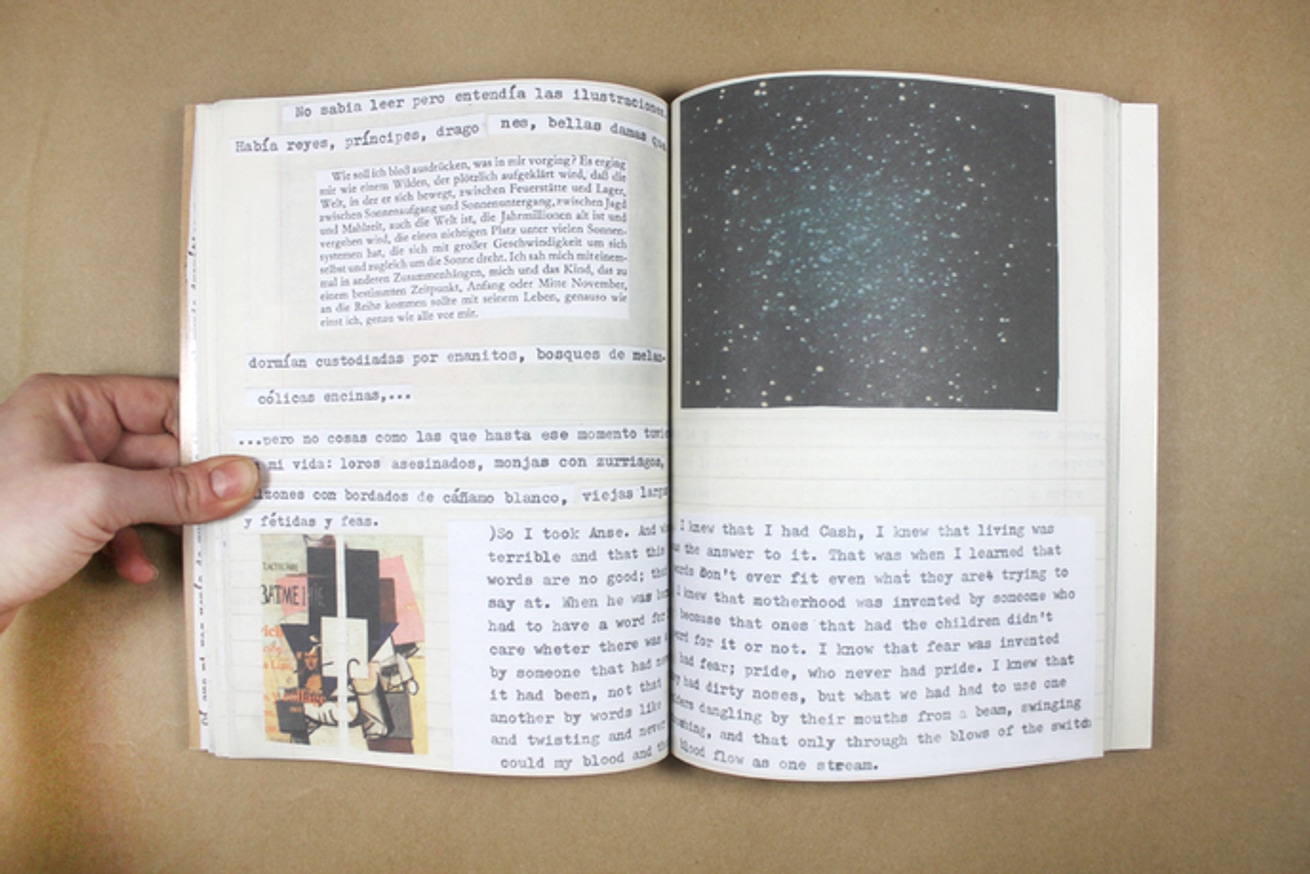 No sabia leer pero entendía las ilustraciones.
Había reyes, príncipes, drago nes, bellas damas que
Wie soll ich bloß ausdrücken, was in mir vorging? Es erging
mir wie einem Wilden, der plötzlich aufgeklärt wird, daß die
Welt, in der er sich bewegt, zwischen Feuerstätte und Lager,
zwischen Sonnenaufgang und Sonnenuntergang, zwischen Jagd
und Mahlzeit, auch die Welt ist, die Jahrmillionen alt ist und
vergehen wird, die einen nichtigen Platz unter vielen Sonnen-
systemen hat, die sich mit großer Geschwindigkeit um sich
selbst und zugleich um die Sonne dreht. Ich sah mich mit einem-
mal in anderen Zusammenhängen, mich und das Kind, das zu
einem bestimmten Zeitpunkt, Anfang oder Mitte November,
an die Reihe kommen sollte mit seinem Leben, genauso wie
einst ich, genau wie alle vor mir.
dormían custodiadas por enanitos, bosques de melan-
cólicas encinas,...
...pero no cosas como las que hasta ese momento
mi vida: loros asesinados, monjas con zurriagos,
con bordados de cáñamo blanco, viejas
y fétidas y feas.
)So I took Anse. And I knew that I had Cash, I knew that living was
terrible and that this the answer to it. That was when I learned that
words are no good; don't ever fit even what they are trying to
say at. When he was I knew that motherhood was invented by someone who
had to have a word for because that ones that had the children didn't
care wheter there was for it or not. I know that fear was invented
by someone that had had fear; pride, who never had pride. I knew that
it had been, not that had dirty noses, but what we had had to use one
another by words like dangling by their mouths from a beam, swinging
and twisting and never and that only through the blows of the switch
could my blood and blood flow as one stream.